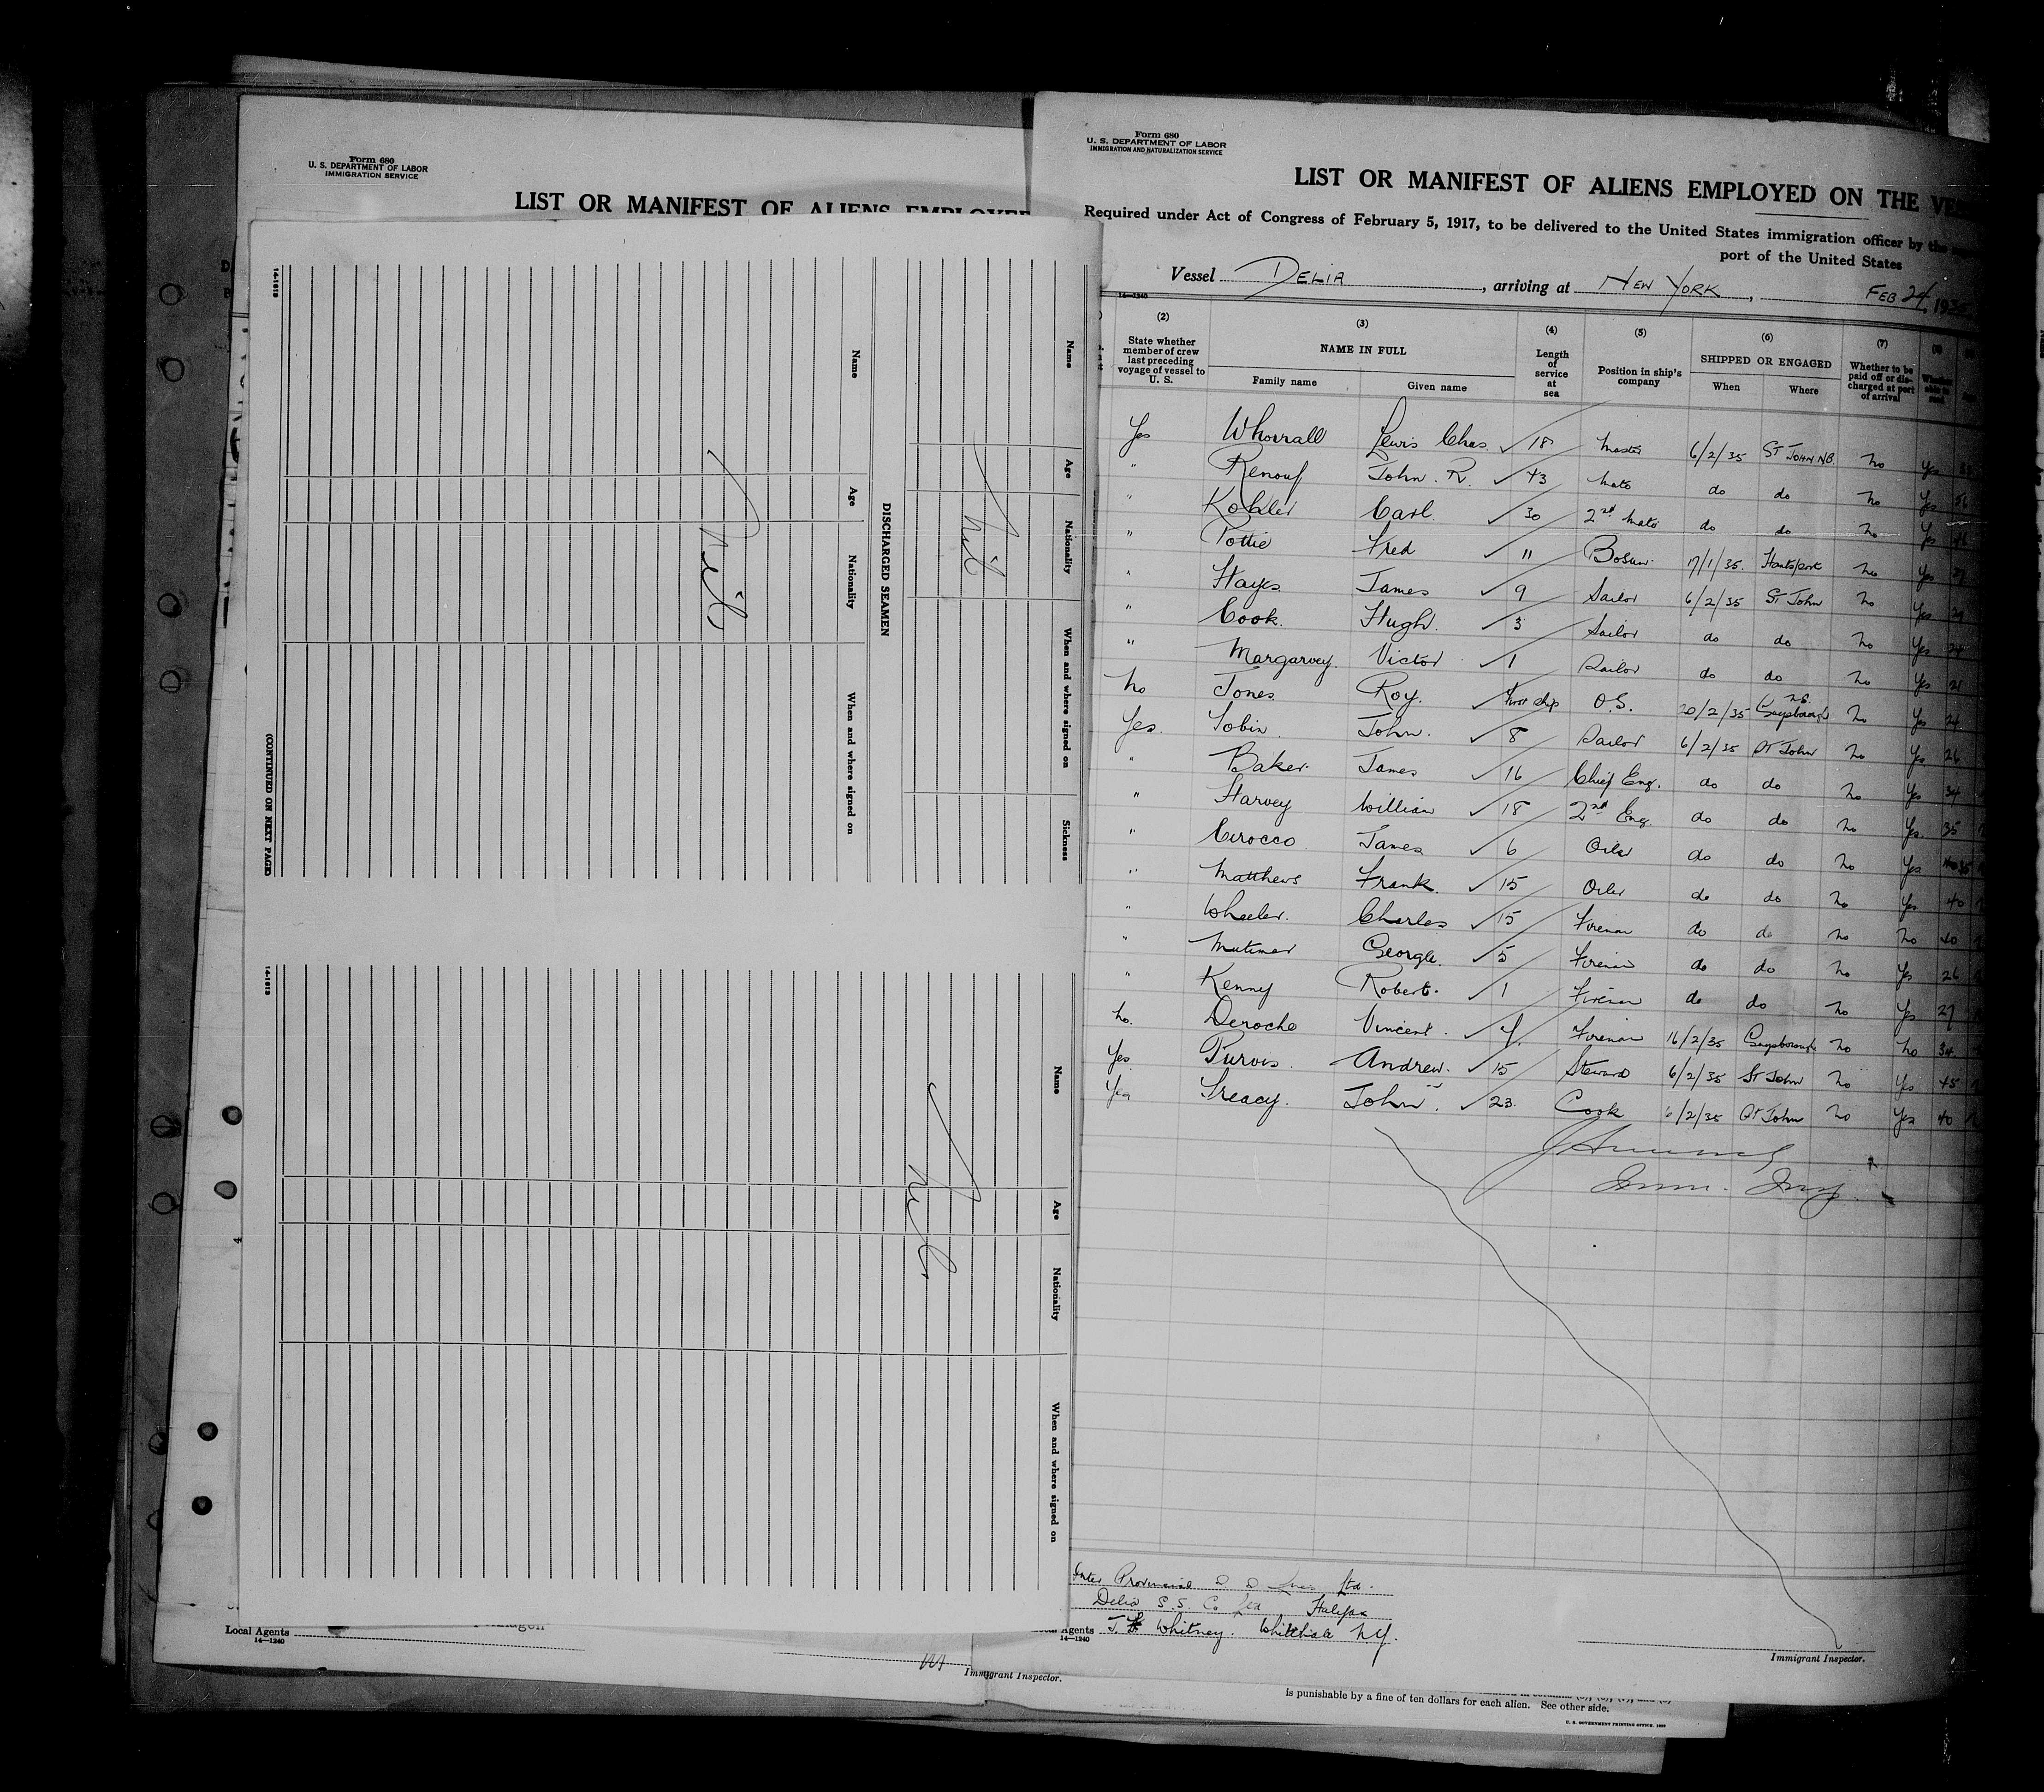 Form 680
U. S. DEPARTMENT OF LABOR
IMMIGRATION SERVICE
LIST OR MANIFEST OF ALIENS EMPLOYED
14-1618
Name Age Nationality When and where signed on Sickness
nil
DISCHARGED SEAMEN
Name Age Nationality When and where signed on
nil
(CONTINUED ON NEXT PAGE)
14-1618
Name Age Nationality When and where signed on
nil
4
Local Agents
14—1240
Immigrant Inspector.
Form 680
U. S. DEPARTMENT OF LABOR
IMMIGRATION AND NATURALIZATION SERVICE
LIST OR MANIFEST OF ALIENS EMPLOYED ON THE VES
Required under Act of Congress of February 5, 1917, to be delivered to the United States immigration officer by the
port of the United States
Vessel DELIA, arriving at NEW YORK, FEB 24, 1935
14—1240
(2) (3) (4) (5) (6) (7) (8)
State whether member of crew last preceding voyage of vessel to U. S.
NAME IN FULL
Family name Given name
Length of service at sea
Position in ship's company
SHIPPED OR ENGAGED
When Where
Whether to be paid off or discharged at port of arrival
Whether able to read
Yes Whorrall Lewis Chas. 18 Master 6/2/35 ST JOHN NB. No Yes
" Renouf John. R. 43 Mate do do No Yes 56
" Kohler Carl. 30 2nd Mate do do No Yes
" Pottie Fred " Bosun. 17/1/35. Hantsport No Yes
" Hayes James 9 Sailor 6/2/35 ST John No Yes 29
" Cook. Hugh. 3 Sailor do do No Yes 24
" Margarvey Victor 1 Sailor do do No Yes 21
No Jones Roy. First Ship O.S. 20/2/35 Guysborough N.S. No Yes 24
Yes. Tobin. John. 8 Sailor 6/2/35 St John No Yes 26
" Baker. James 16 Chief Eng. do do No Yes 34
" Harvey William 18 2nd Eng. do do No Yes. 35
" Cirocco James 6 Oiler do do No Yes 35
" Matthews Frank. 15 Oiler do do No Yes 40
" Wheeler. Charles 15 Fireman do do No No 40
" Mutimer George. 5 Fireman do do No Yes 26
" Kenny Robert. 1 Fireman do do No Yes 27
No. Deroche Vincent. 4. Fireman 16/2/35 Guysborough No No 34
Yes. Purvis. Andrew. 15 Steward 6/2/35 St John No Yes 45
Yes Treacy. John. 23. Cook 6/2/35 St John No Yes 40
Inter Provincial S S Lines Ltd.
Delia S.S. Co Ltd Halifax
Agents T. Whitney. Whitehall N.Y.
14—1240
Immigrant Inspector.
is punishable by a fine of ten dollars for each alien. See other side.
U. S. GOVERNMENT PRINTING OFFICE